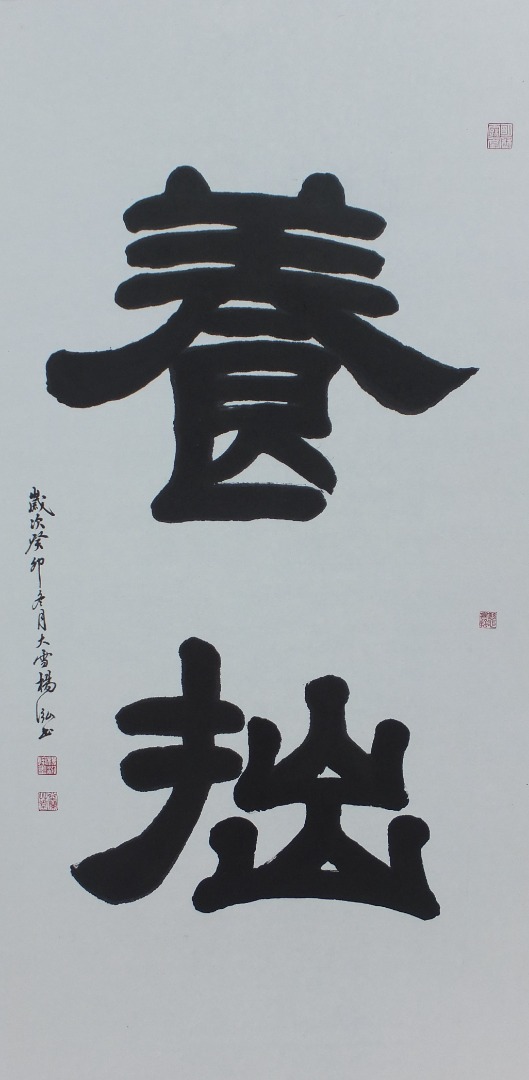 養拙
歲次癸卯冬月大雪楊泓書